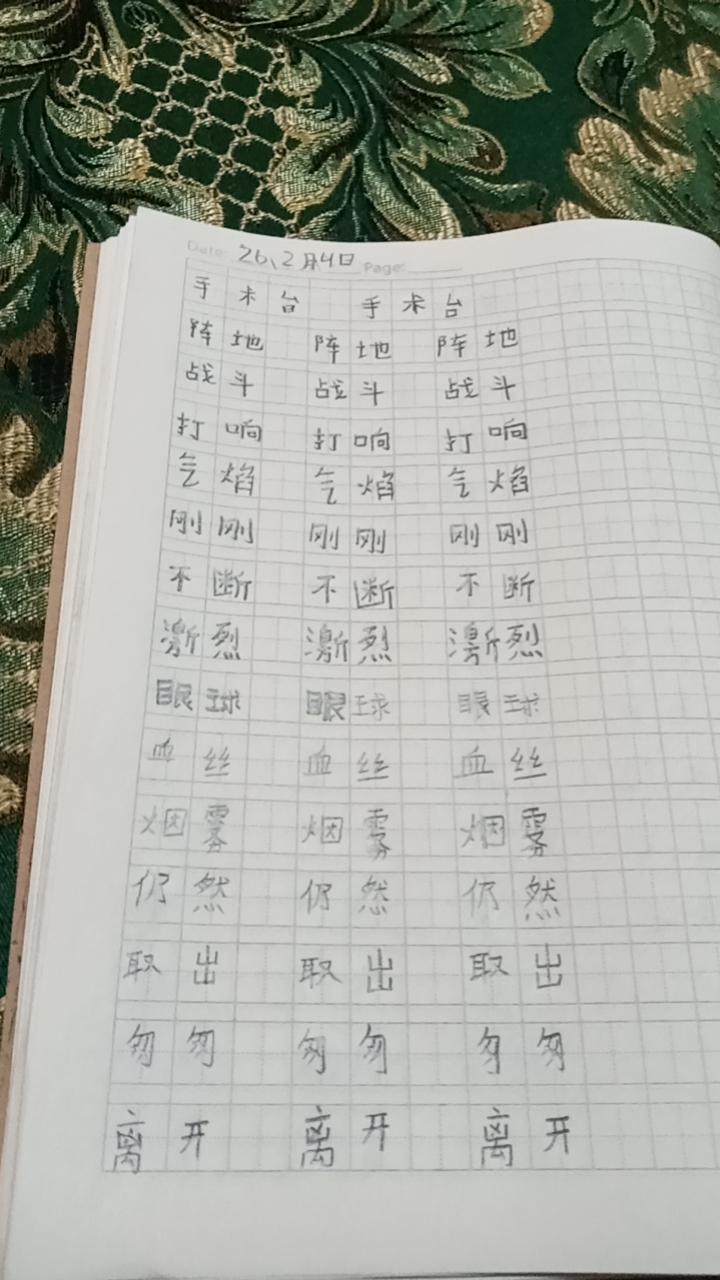 Date: 26、2月4日 Page:
手术台 手术台
阵地 阵地 阵地
战斗 战斗 战斗
打响 打响 打响
气焰 气焰 气焰
刚刚 刚刚 刚刚
不断 不断 不断
激烈 激烈 激烈
眼球 眼球 眼球
血丝 血丝 血丝
烟雾 烟雾 烟雾
仍然 仍然 仍然
取出 取出 取出
匆匆 匆匆 匆匆
离开 离开 离开